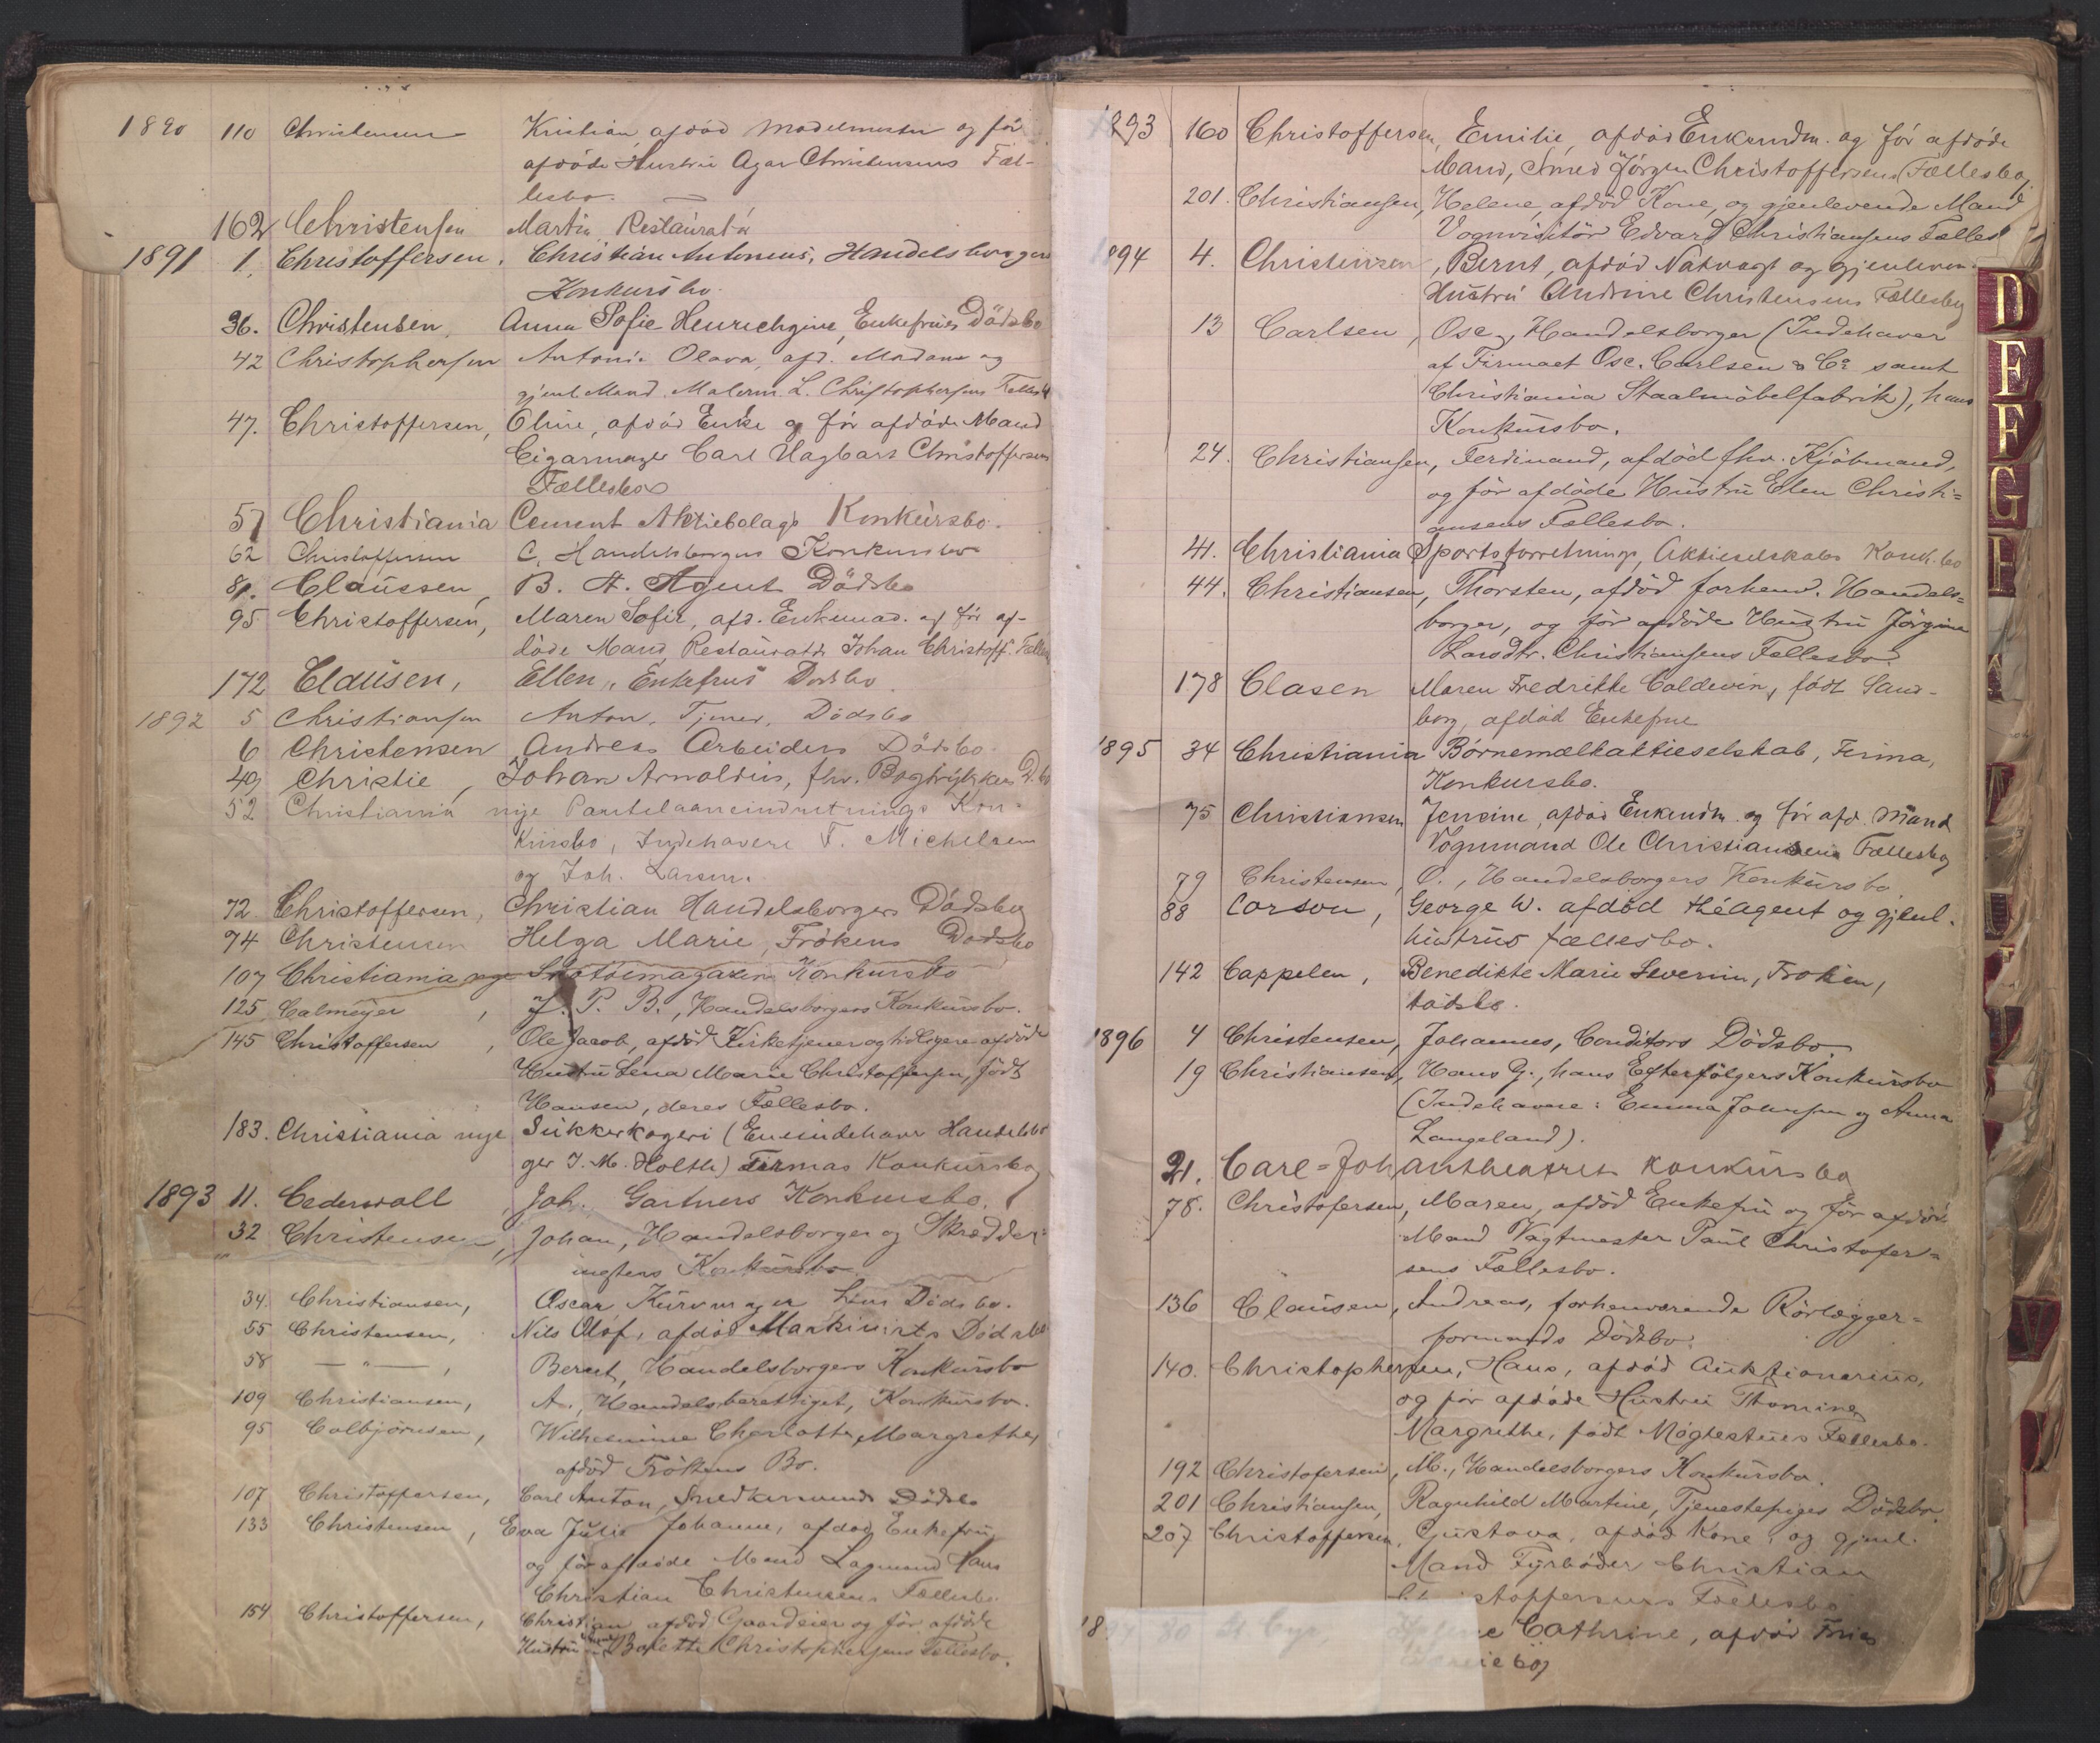 1890 110 Christensen Kristian, afdöd Modelmester og för
afdöde Hustru Agar Christensens Fæl-
lesbo.
162 Christensen Martin Restauratör
1891 1. Christoffersen, Christian Antonius, Handelsborgers
Konkursbo.
36. Christensen, Anna Sofie Henrichgine, Enkefrues Dödsbo
42 Christophersen Antonie Olava, afd. Madam og
gjenl. Mand, Malerm. L. Christophersens Fællesb
47. Christoffersen, Oline, afdöd Enke og för afdöde Mand
Cigarmager Carl Hagbart Christoffersens
Fællesbo
57 Christiania Cement Aktiebolags Konkursbo.
62 Christoffersen C. Handelsborgers Konkursbo
81. Claussen, B. A. Agents Dödsbo
95 Christoffersen, Maren Sofie, afd. Enkemad. og för af-
döde Mand Restauratör Johan Christoff. Fælles
172 Clausen, Ellen, Enkefrus Dödsbo
1892 5 Christiansen Anton, Tjener, Dödsbo
6 Christensen Andreas Arbeiders Dödsbo.
49 Christie, Johan Arnoldus, fhv. Bogtrykkers D.bo
52 Christiania nye Pantelaaneindretnings Kon-
kursbo, Indehavere T. Michelsen
og Joh. Larsen.
72 Christoffersen, Christian Handelsborgers Dödsbo
74 Christensen Helga Marie, Frökens Dödsbo
107 Christiania nye Skotöimagazin Konkursbo
125 Calmeyer, J. P. B., Handelsborgers Konkursbo.
145 Christoffersen, Ole Jacob, afdöd Kirketjener og tidligere afdöde
Hustru Lena Marie Christoffersen, födt
Hansen, deres Fællesbo.
183. Christiania nye Sukkerkogeri (Eneindehaver Handelsbor
ger J. M. Holth) Firmas Konkursbo
1893 11. Cederwall, Joh. Gartners Konkursbo.
32 Christensen, Johan, Handelsborger og Skrædder-
mesters Konkursbo
34. Christiansen, Oscar Kurvmager hans Dödsbo.
55 Christensen, Nils Olof, afdöd Maskinists Dödsbo
58 — " —, Bernt, Handelsborgers Konkursbo
109 Christiansen, A., Handelsberettiget, Konkursbo.
95 Colbjörnsen, Wilhelmine Charlotte Margrethe,
afdöd Frökens Bo.
107 Christoffersen, Carl Anton, Snedkersvends Dödsbo
133 Christensen, Eva Julie Johanne, afdöd Enkefru,
og för afdöde Mand Lagmand Hans
Christian Christensens Fællesbo
154 Christoffersen, Christian afdöd Gaardeier og för afdöde
Hustru Bolette Christophersens Fællesbo.
1893 160 Christoffersen, Emilie, afdöd Enkemdm. og för afdöde
Mand, Smed Jörgen Christoffersens Fællesbo.
201. Christiansen, Helene, afdöd Kone, og gjenlevende Mand
Vognvisitör Edvard Christiansens Fælles
1894 4. Christensen, Bernt, afdöd Natvagt og gjenleven-
Hustru Andrine Christensens Fællesbo
13 Carlsen, Osc, Handelsborger (Indehaver
af Firmaet Osc. Carlsen & Co samt
Christiania Staalmöbelfabrik), hans
Konkursbo.
24. Christiansen, Ferdinand, afdöd fhv. Kjöbmand,
og för afdöde Hustru Ellen Christi=
ansens Fællesbo.
41. Christiania Sportsforretnings, Aktieselskabs Konk.bo
44. Christiansen, Thorsten, afdöd forhenv. Handels=
borger, og för afdöde Hustru Jörgine
Larsdtr. Christiansens Fellesbo.
178 Clasen Maren Fredrikke Caldevin, födt Sand-
borg, afdöd Enkefrue
1895 34 Christiania Börnemælkaktieselskab, Firma,
Konkursbo.
75 Christiansen Jensine, afdöd Enkemdm. og för afd. Mand
Vognmand Ole Christiansens Fællesbo
79 Christensen, O., Handelsborgers Konkursbo
88 Corson, George W. afdöd théagent og gjenl.
hustrus fællesbo.
142 Cappelen, Benedikte Marie Severin, Fröken,
dödsbo.
1896 4 Christensen, Johannes, Conditors Dödsbo.
19 Christiansen, Hans G., hans Efterfölgers Konkursbo
(Indehavere: Emma Johnsen og Anna
Langeland).
21. Carl=Johantheatrets Konkursbo
78. Christofersen, Maren, afdöd Enkefru og för afdöd
Mand Vagtmester Paul Christofer=
sens Fællesbo.
136 Clausen, Andreas, forhenværende Rörlægger=
formands Dödsbo.
140. Christophersen, Hans, afdöd Auktionarius,
og för afdöde Hustru Thomine
Margrethe, födt Mögtestues Fællesbo.
192 Christofersen, M., Handelsborgers Konkursbo.
201 Christiansen, Ragnhild Martine, Tjenestepiges Dödsbo.
207 Christoffersen, Gustava, afdöd Kone, og gjenl.
Mand Fyrböder Christian
stoffersens Fællesbo
18 80 Cathrine, afdöd Frues
D
E
F
G
I